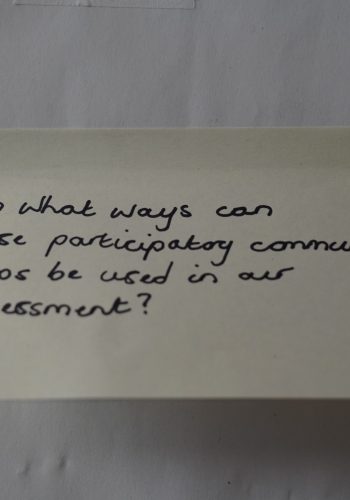 what ways can
se participatory commu
os be used in our
essment?